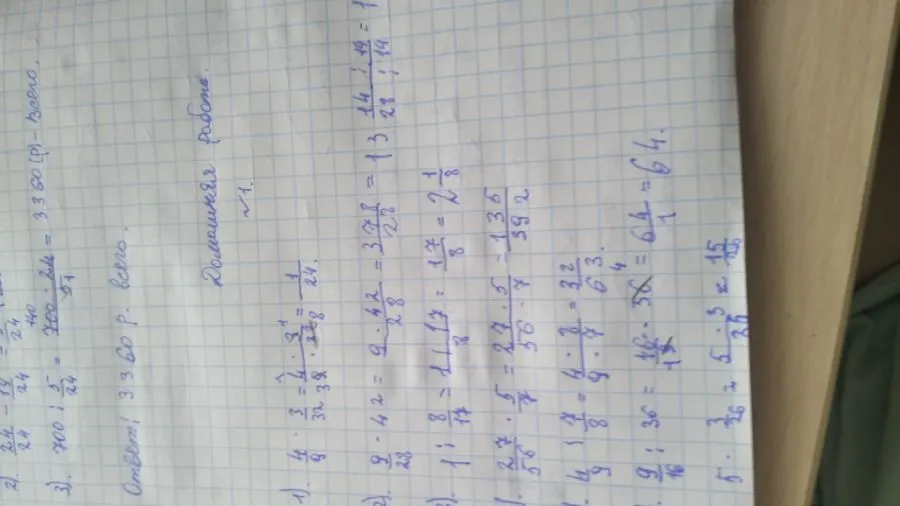 2). 24/24 - 19/24 =
3). 700 : 5/24 = 700 · 24/51 = 3360 (р) - всего.
Ответ: 3360 р. всего.
Домашняя работа.
№1.
1). 4/9 · 3/32 = 4 · 3/9 · 32 = 1/24.
2). 9/28 · 42 = 9 · 42/28 = 378/28 = 13 14/28 : 14/14 = 1
3). 1 : 8/17 = 1 | 17/8 = 17/8 = 2 1/8
27/56 · 5/7 = 27 · 5/56 · 7 = 135/392
4/9 : 7/8 = 4 · 8/9 · 7 = 32/63.
9/16 : 36 = 16 · 36 = 64/1 = 64.
5 · 3/26 = 5 · 3